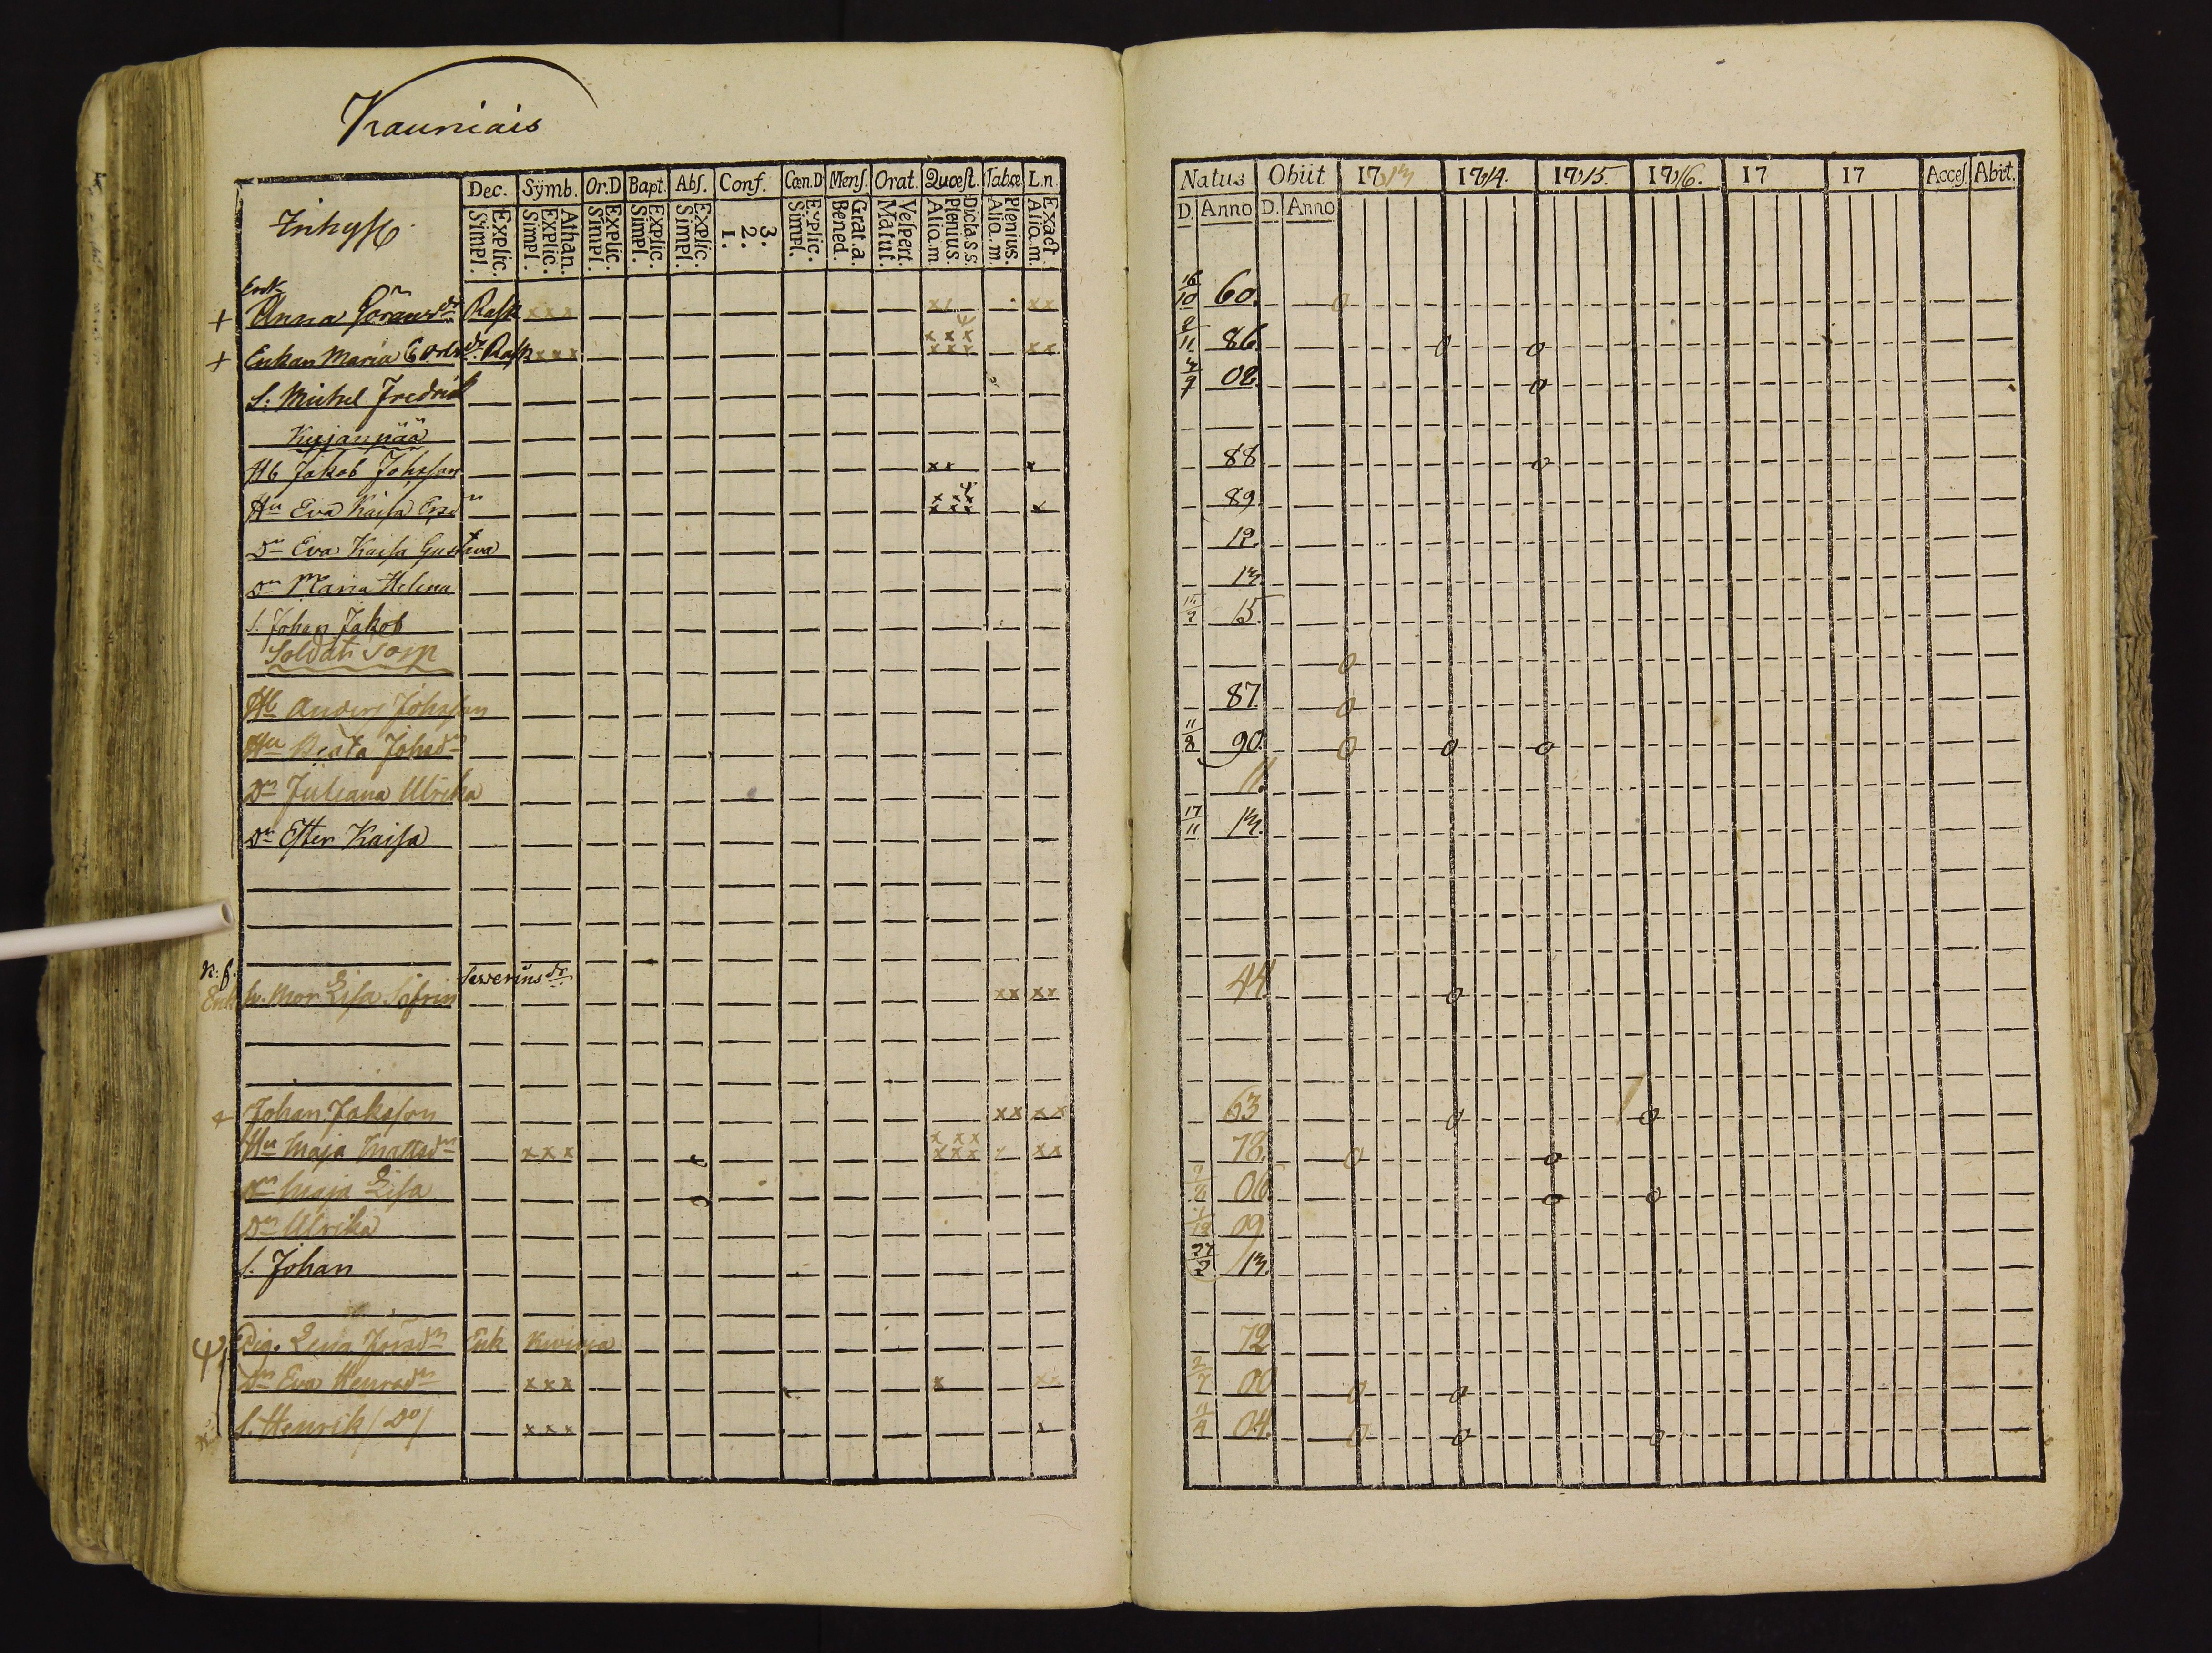 Kauniais
Dec. Symb. Or.D Bapt. Abs. Conf. Cœn.D Mens. Orat. Quœst. Tabœ L.n.
Inhyss
Explic. Simpl. Athan. Explic. Simpl. Explic. Simpl. Explic. Simpl. Explic. Simpl. 3. 2. 1. Explic. Simpl. Grat.a. Bened. Vespert. Matut. Dicta.s.s. Plenius. Alio.m. Plenius. Alio.m. Exact Alio.m.
Enk
+ Anna Göransdr Rask xxx xx xx
+ Enkan Maria dr Rask xxx xxx xxx xx
S. Michel Fredrik
Kujanpää
Hb Jakob Johsson xx x
Hu Eva Kaisa x xx x xx x
Dr Eva Kaisa Gustava
Dr Maria Helena
S. Johan Jakob
Soldats Torp
Hb Anders Johsson
Hu Beata Johsdr
Dr Juliana Ulrika
Dr Ester Kaisa
n.b. Sewerinsdr
Enk Mor Lisa xx xx
+ Johan Jaksson xx xx
Hu Maja Mattsdr xxx x xx xxx x xx
Dr Maja Lisa
Dr Ulrika
S. Johan
Ψ Lena Enk
Dr Eva Henrsdr xxx x xx
S. Henrik /Do/ xxx x
Natus Obiit 1713 1714. 1715. 1716. 17 17 Acces. Abiit.
D. Anno D. Anno
16/10 60. o
2/11 86. o o
02 o
88 o
89.
12.
13.
15.
o
87. o
11/8 90. o o o
11.
17/11 13.
44 o
63 o o
78. o o
06 o o
1/12 09.
13.
72
2/7 00 o o
04. o o o